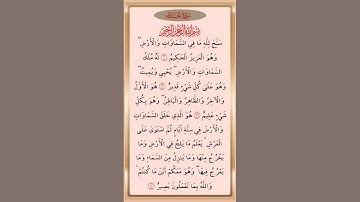 سَبَّحَ لِلّٰهِ مَا فِي السَّمَاوَاتِ وَالْأَرْضِ
وَهُوَ الْعَزِيزُ الْحَكِيمُ ۝ لَهُ مُلْكُ
السَّمَاوَاتِ وَالْأَرْضِ يُحْيِي وَيُمِيتُ
وَهُوَ عَلَىٰ كُلِّ شَيْءٍ قَدِيرٌ ۝ هُوَ الْأَوَّلُ
وَالْآخِرُ وَالظَّاهِرُ وَالْبَاطِنُ وَهُوَ بِكُلِّ
شَيْءٍ عَلِيمٌ ۝ هُوَ الَّذِي خَلَقَ السَّمَاوَاتِ
وَالْأَرْضَ فِي سِتَّةِ أَيَّامٍ ثُمَّ اسْتَوَىٰ عَلَى
الْعَرْشِ يَعْلَمُ مَا يَلِجُ فِي الْأَرْضِ وَمَا
يَخْرُجُ مِنْهَا وَمَا يَنْزِلُ مِنَ السَّمَاءِ وَمَا
يَعْرُجُ فِيهَا وَهُوَ مَعَكُمْ أَيْنَ مَا كُنْتُمْ
وَاللّٰهُ بِمَا تَعْمَلُونَ بَصِيرٌ ۝